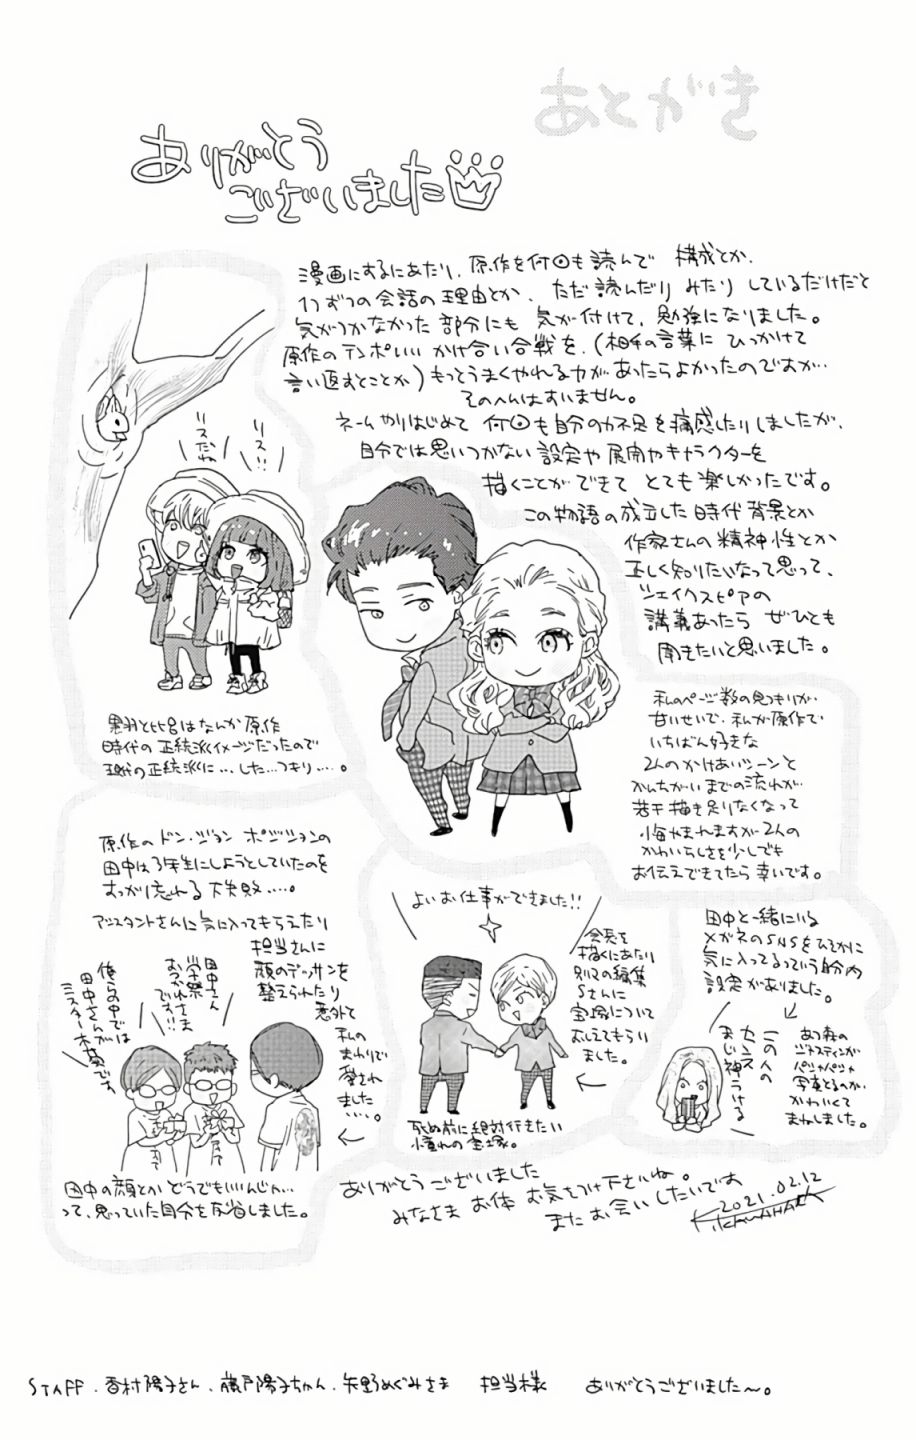 あとがき
ありがとう
ございました
漫画にするにあたり、原作を何回も読んで 構成とか、
1つずつの会話の理由とか、ただ読んだり みたり しているだけだと
気がつかなかった部分にも 気が付けて、勉強になりました。
原作のテンポいい かけ合い合戦を、(相手の言葉に ひっかけて
言い返すとことか)もっとうまくやれる力が あったらよかったのですが…
そのへんはすいません。
ネームやりはじめて 何回も自分の力不足を痛感したりしましたが、
自分では思いつかない 設定や展開やキャラクターを
描くことができて とても楽しかったです。
この物語の成立した時代背景とか
作家さんの精神性とか
正しく知りたいなって思って、
シェイクスピアの
講義あったら ぜひとも
聞きたいと思いました。
リス!!
リスだね
はなんか原作
時代の正統派イメージだったので
現代の正統派に…した…つもり…。
私のページ数の見積りが
甘いせいで、私が原作で
いちばん好きな
2人のかけあいシーンと
かんちがいまでの流れが
若干描き足りなくなって
悔やまれますが2人の
かわいらしさを少しでも
お伝えできてたら幸いです。
原作のドン・ジョン ポジションの
田中は3年生にしようとしていたのを
すっかり忘れる 大失敗…。
アシスタントさんに気に入ってもらえたり
担当さんに
顔のデッサンを
整えられたり
意外で
私の
まわりで
愛され
ました
…。
田中さん
学祭
おつかれさま
です!!
俺らの中では
田中さんが
ミスター本英です
田中の顔とかどうでもいいんじゃ…
って、思っていた自分を反省しました。
よいお仕事ができました!!
会長を
描くにあたり
別の編集
Sさんに
宝塚について
おしえてもらい
ました。
死ぬ前に絶対行きたい
憧れの宝塚。
田中と一緒にいる
メガネのSNSをひそかに
気に入ってるっていう自分内
設定がありました。
あつ森の
ジャスティンが
パシャパシャ
写真とるのが
かわいくて
まねしました。
この人の
センス
まじ神
うける
ありがとうございました
みなさま お体 お気をつけ下さいね。
また お会いしたいです
2021.02.12
STAFF.香村陽子さん、藤戸陽子ちゃん、矢野めぐみさま 担当様 ありがとうございました〜。